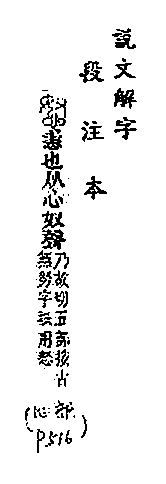 說文解字
段注本
恚也从心奴聲
乃故切五部按古
無努字只用怒
(心部
P.516)